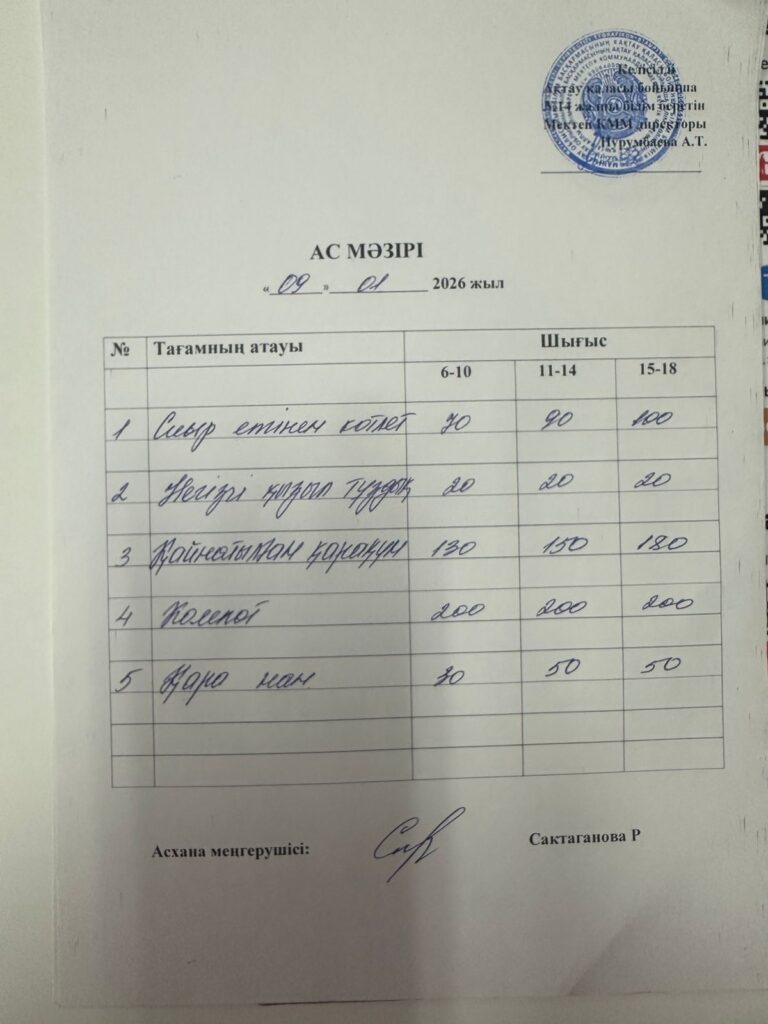 Келісілді
Ақтау қаласы бойынша
№14 жалпы білім беретін
Мектеп КММ директоры
Нурумбаева А.Т.
АС МӘЗІРІ
«09» 01 2026 жыл
№ Тағамның атауы Шығыс
6-10 11-14 15-18
1 Сиыр етінен котлет 70 90 100
2 Негізгі қызыл тұздық 20 20 20
3 Қайнатылған қарақұм 130 150 180
4 Компот 200 200 200
5 Қара нан 30 50 50
Асхана меңгерушісі: Сактаганова Р